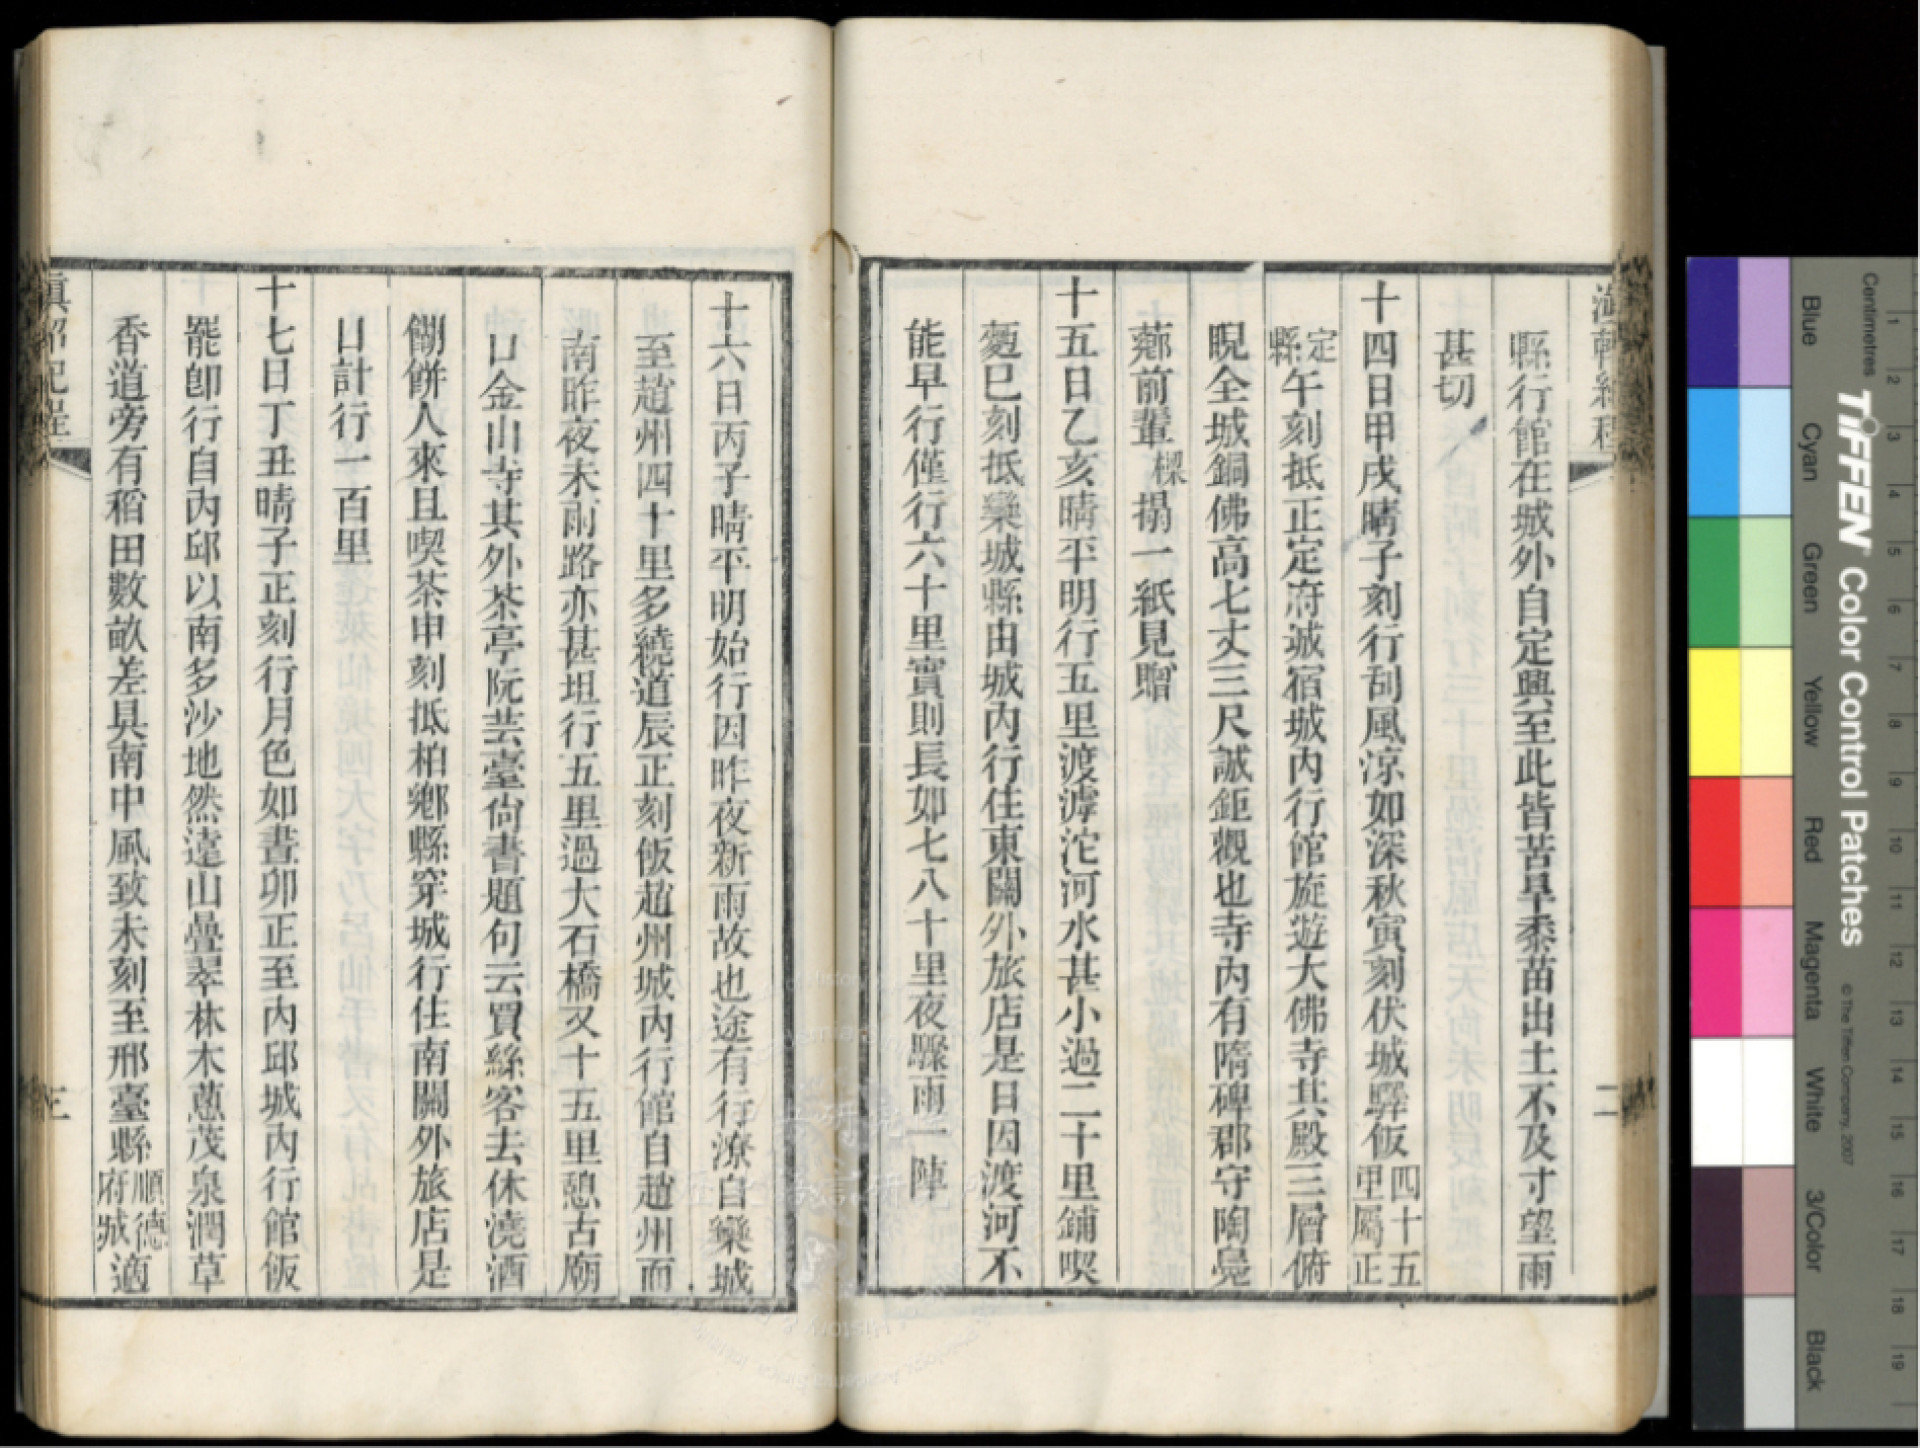 縣行館在城外自定興至此皆苦旱黍苗出土不及寸望雨
甚切
十四日甲戌晴子刻行刮風涼如深秋寅刻伏城驛飯四十五里屬正
定縣午刻抵正定府城宿城內行館旋遊大佛寺其殿三層俯
睨全城銅佛高七丈三尺誠鉅觀也寺內有隋碑郡守陶鳧
薌前輩樑搨一紙見贈
十五日乙亥晴平明行五里渡滹沱河水甚小過二十里鋪喫
麪巳刻抵欒城縣由城內行住東關外旅店是日因渡河不
能早行僅行六十里實則長如七八十里夜驟雨一陣
二
十六日丙子晴平明始行因昨夜新雨故也途有行潦自欒城
至趙州四十里多繞道辰正刻飯趙州城內行館自趙州而
南昨夜未雨路亦甚坦行五里過大石橋又十五里憩古廟
口金山寺其外茶亭阮芸臺尚書題句云買絲客去休澆酒
餬餅人來且喫茶申刻抵柏鄉縣穿城行住南關外旅店是
日計行一百里
十七日丁丑晴子正刻行月色如晝卯正至內邱城內行館飯
罷卽行自內邱以南多沙地然遠山疊翠林木蔥茂泉潤草
香道旁有稻田數畝差具南中風致未刻至邢臺縣順德府城適
滇軺紀程
三
Centimetres
Blue
Cyan
Green
Yellow
Red
Magenta
White
3/Color
Black
TIFFEN Color Control Patches
© The Tiffen Company, 2007
1 2 3 4 5 6 7 8 9 10 11 12 13 14 15 16 17 18 19